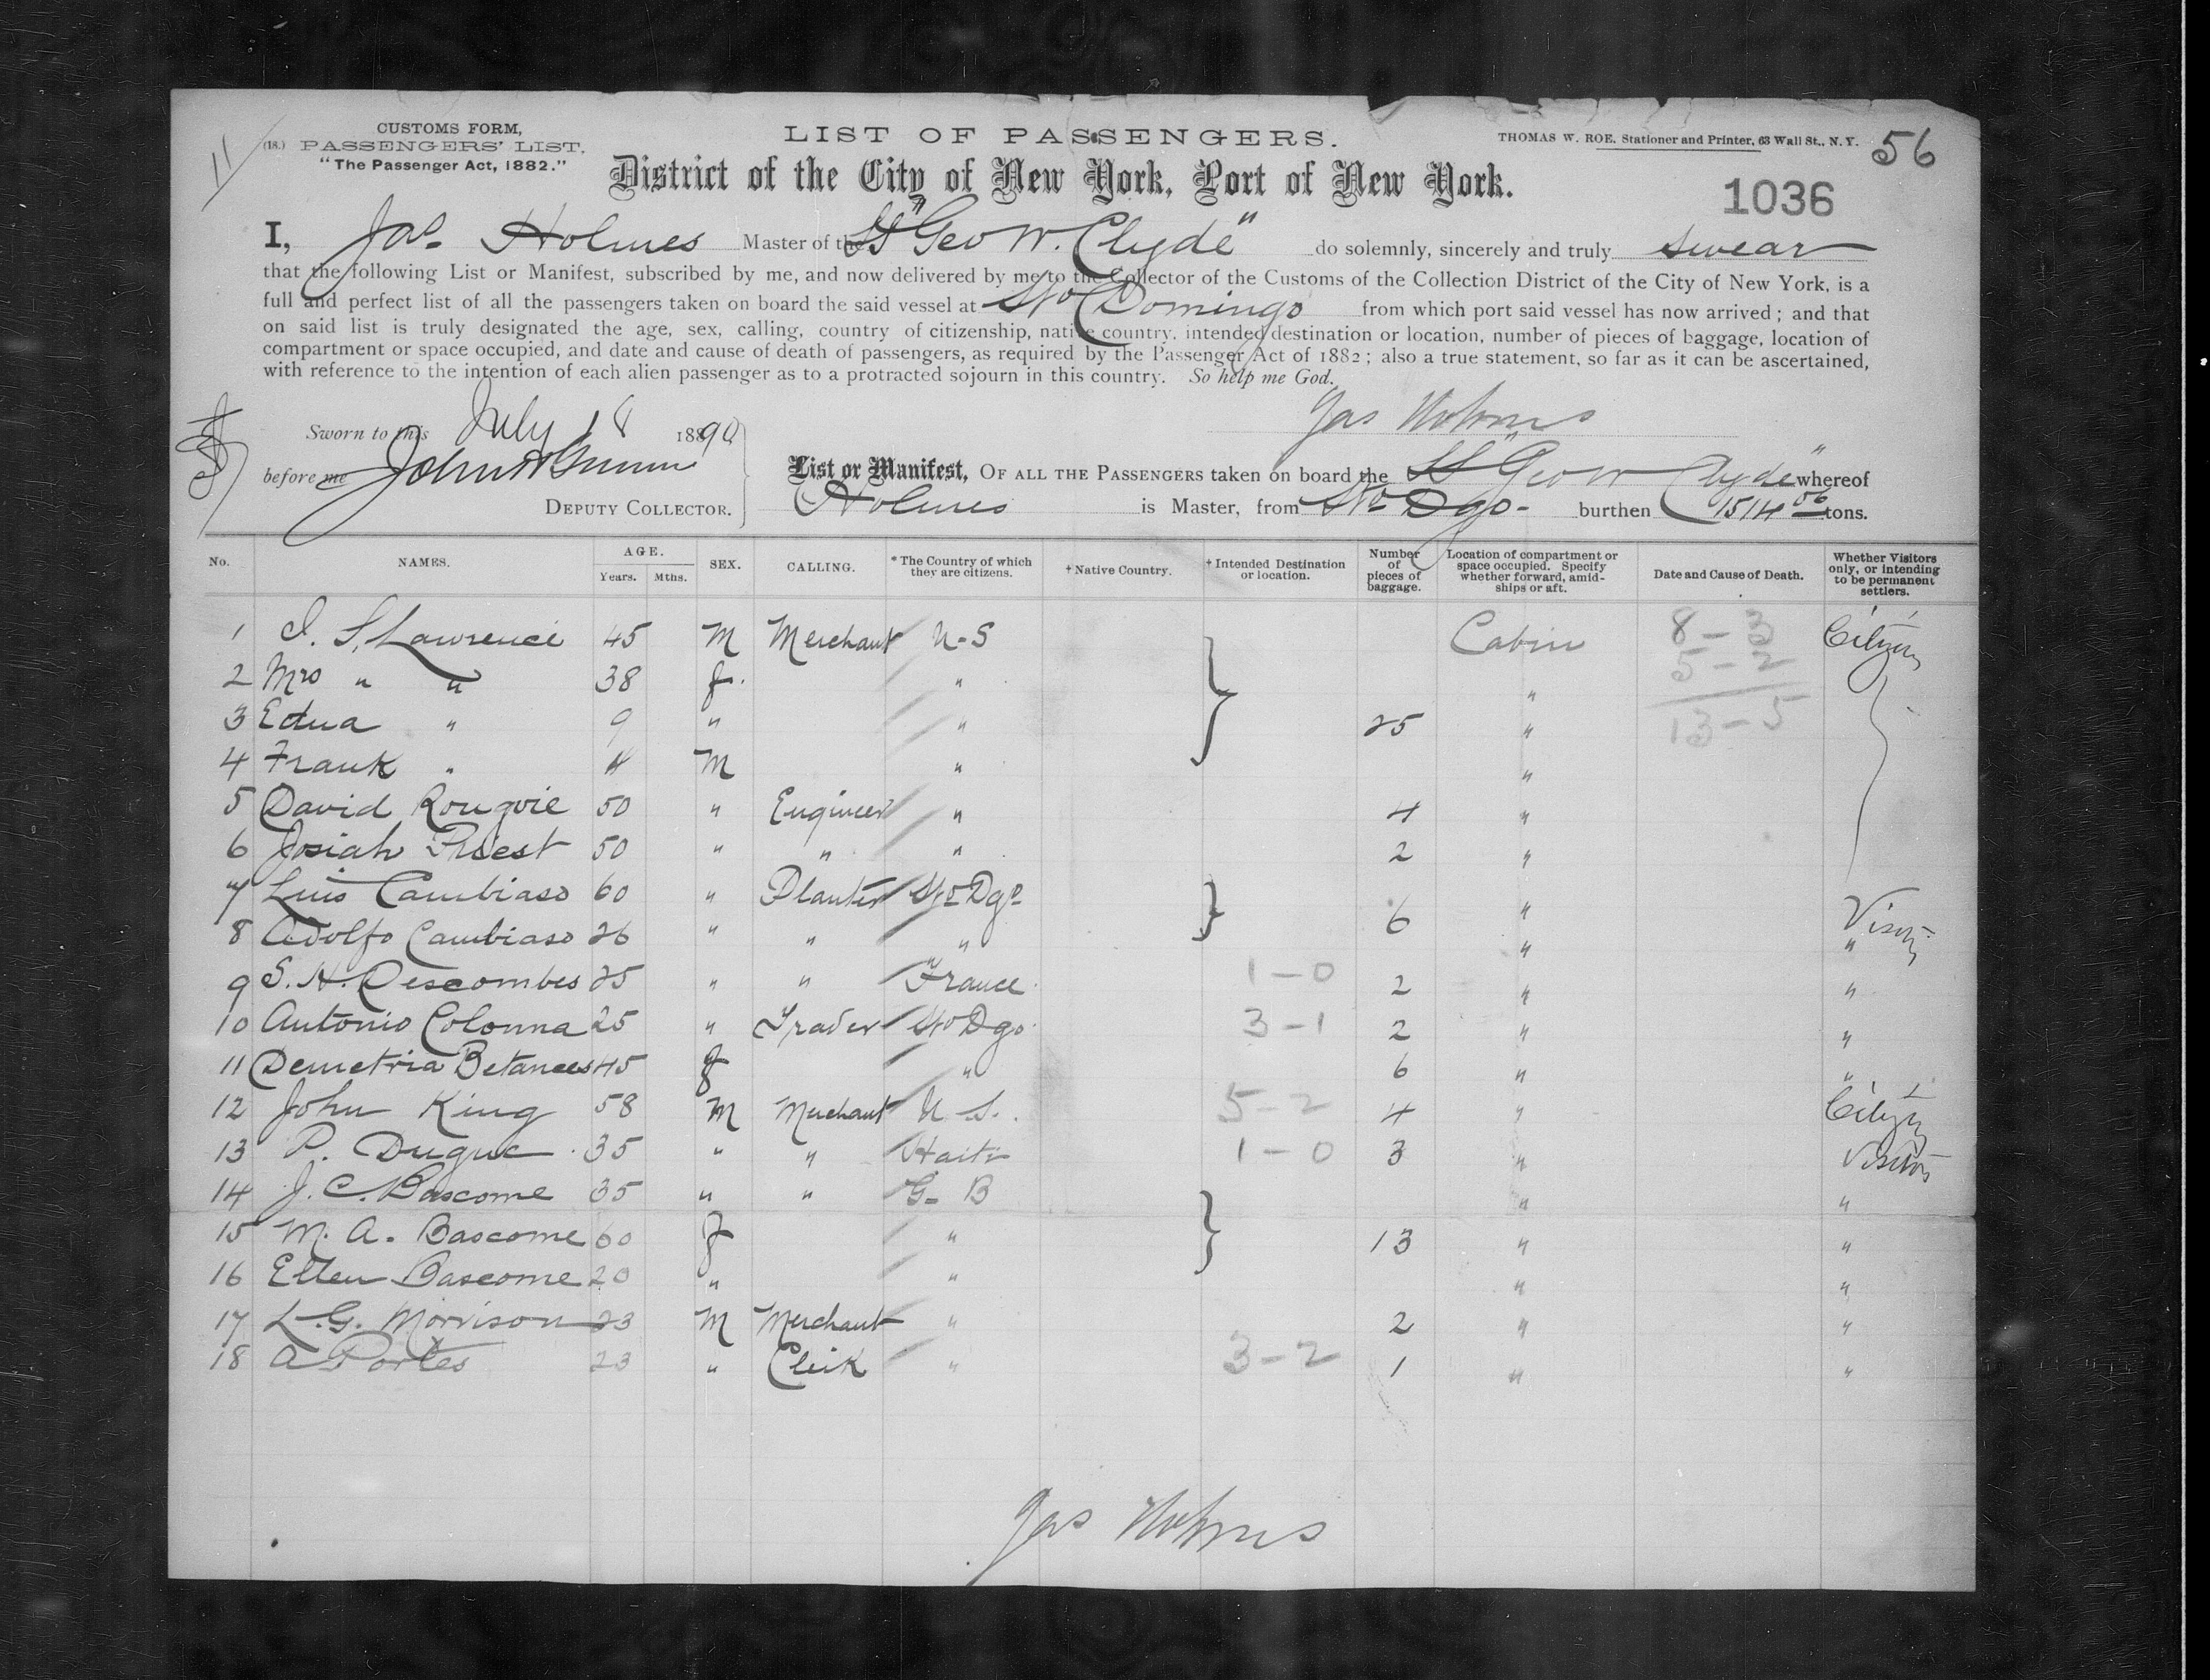 11
CUSTOMS FORM,
(18.) PASSENGERS' LIST.
"The Passenger Act, 1882."
LIST OF PASSENGERS.
THOMAS W. ROE, Stationer and Printer, 63 Wall St., N. Y. 56
District of the City of New York, Port of New York.
1036
I, Jas. Holmes Master of the SS "Geo W. Clyde" do solemnly, sincerely and truly swear
that the following List or Manifest, subscribed by me, and now delivered by me to the Collector of the Customs of the Collection District of the City of New York, is a
full and perfect list of all the passengers taken on board the said vessel at Sto Domingo from which port said vessel has now arrived; and that
on said list is truly designated the age, sex, calling, country of citizenship, native country, intended destination or location, number of pieces of baggage, location of
compartment or space occupied, and date and cause of death of passengers, as required by the Passenger Act of 1882; also a true statement, so far as it can be ascertained,
with reference to the intention of each alien passenger as to a protracted sojourn in this country. So help me God.
Jas Holmes
Sworn to this July 18 1890
before me
List or Manifest, OF ALL THE PASSENGERS taken on board the SS "Geo W Clyde" whereof
DEPUTY COLLECTOR. Holmes is Master, from Sto Dgo - burthen 1514 06 tons.
No. NAMES. AGE. Years. Mths. SEX. CALLING. * The Country of which they are citizens. † Native Country. † Intended Destination or location. Number of pieces of baggage. Location of compartment or space occupied. Specify whether forward, amidships or aft. Date and Cause of Death. Whether Visitors only, or intending to be permanent settlers.
1 I. S. Lawrence 45 M Merchant U-S Cabin 8-3 Citizen
2 Mrs " " 38 f. " " 5-2
3 Edna " 9 " " 25 " 13-5
4 Frank " 4 M " "
5 David Rougvie 50 " Engineer " 4 "
6 Josiah Priest 50 " " " 2 "
7 Luis Cambiaso 60 " Planter Sto Dgo " Visitor
8 Adolfo Cambiaso 26 " " " 6 " "
9 S. H. Descombes 25 " " France 1-0 2 " "
10 Antonio Colonna 25 " Trader Sto Dgo 3-1 2 " "
11 Demetria Betances 45 f " 6 " "
12 John King 58 M Merchant U.S. 5-2 4 " Citizen
13 P. Duguc 35 " " Haiti 1-0 3 " Visitors
14 J. C. Bascome 35 " " G-B " "
15 M. A. Bascome 60 f " 13 " "
16 Ellen Bascome 20 " " " "
17 L. G. Morrison 23 M Merchant " 2 " "
18 A Portes 23 " Clerk " 3-2 1 " "
Jas Holmes